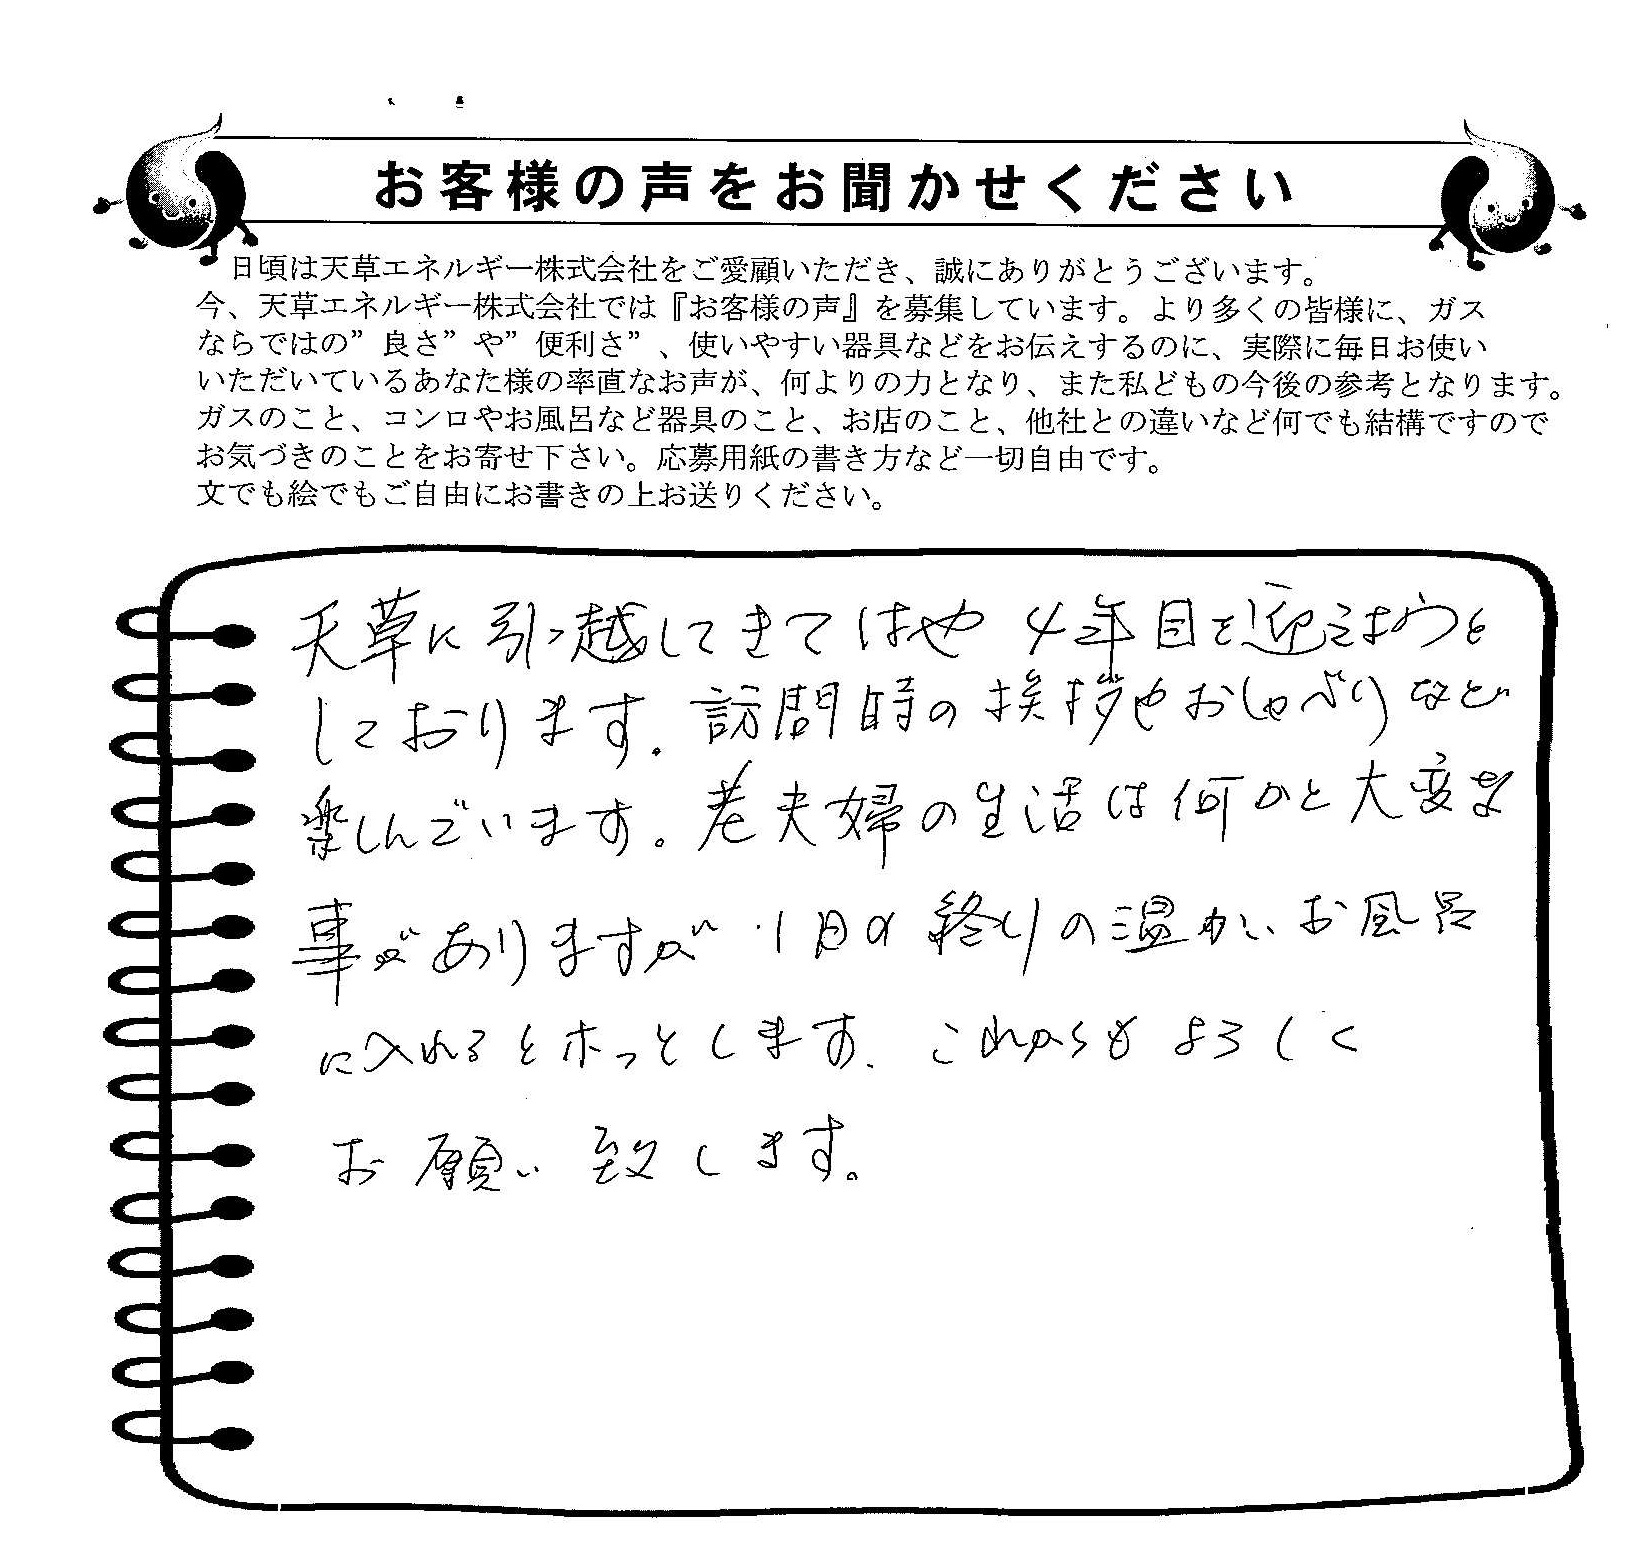 お客様の声をお聞かせください
日頃は天草エネルギー株式会社をご愛顧いただき、誠にありがとうございます。
今、天草エネルギー株式会社では『お客様の声』を募集しています。より多くの皆様に、ガス
ならではの”良さ”や”便利さ”、使いやすい器具などをお伝えするのに、実際に毎日お使い
いただいているあなた様の率直なお声が、何よりの力となり、また私どもの今後の参考となります。
ガスのこと、コンロやお風呂など器具のこと、お店のこと、他社との違いなど何でも結構ですので
お気づきのことをお寄せ下さい。応募用紙の書き方など一切自由です。
文でも絵でもご自由にお書きの上お送りください。
天草に引っ越してきてはや 4年目を迎えようと
しております。訪問時の挨拶やおしゃべりなど
楽しんでいます。老夫婦の生活は何かと大変な
事がありますが 1日の終りの温かいお風呂
に入れるとホッとします。これからもよろしく
お願い致します。